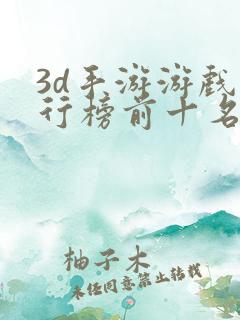 3d手游游戏
行榜前十名
柚子木
未经同意禁止转载